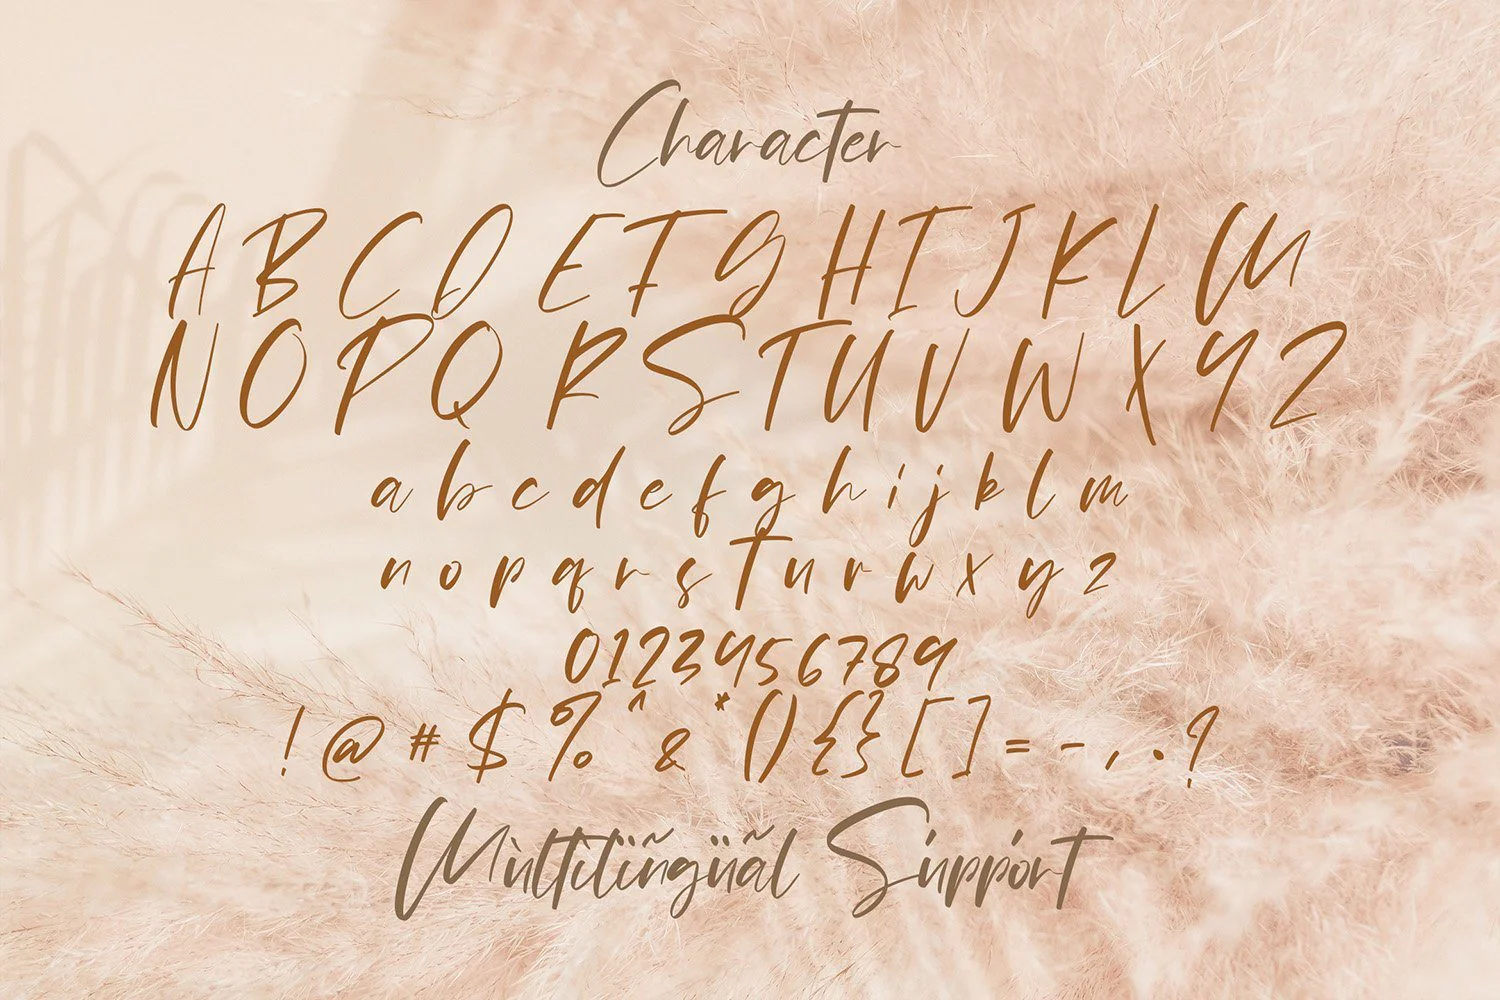 Character
A B C D E F G H I J K L M
N O P Q R S T U V W X Y Z
a b c d e f g h i j k l m
n o p q r s t u v w x y z
0123456789
! @ # $ % ^ & * ( ) { } [ ] = - , . ?
Mùltìlïñgüãl Śúppórt